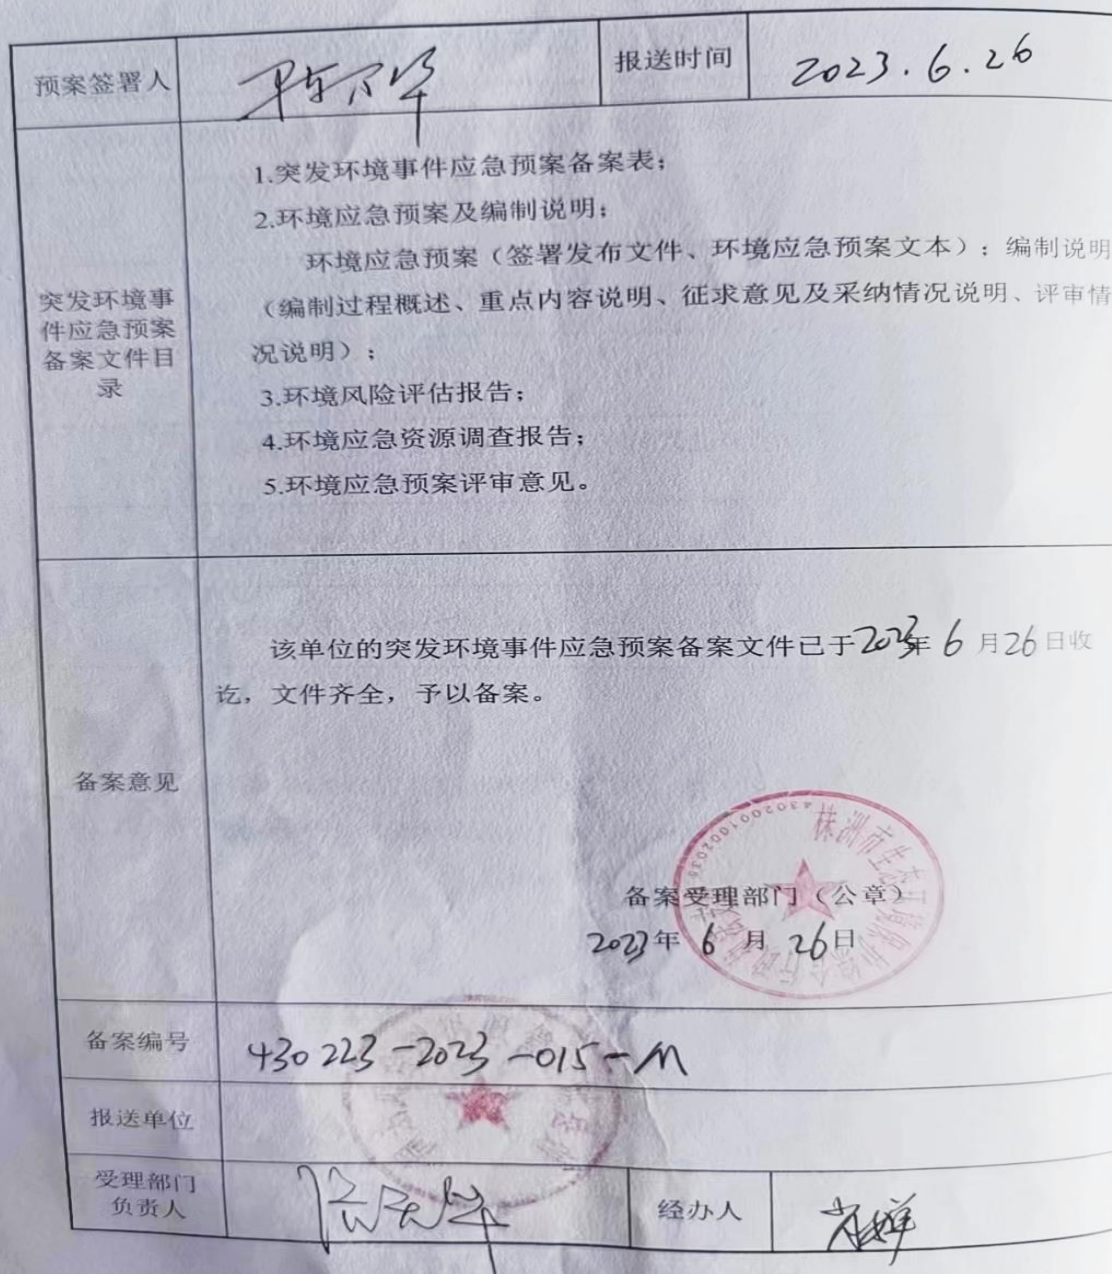 预案签署人
报送时间
2023.6.26
突发环境事
件应急预案
备案文件目
录
1.突发环境事件应急预案备案表；
2.环境应急预案及编制说明；
环境应急预案（签署发布文件、环境应急预案文本）；编制说明
（编制过程概述、重点内容说明、征求意见及采纳情况说明、评审情
况说明）；
3.环境风险评估报告；
4.环境应急资源调查报告；
5.环境应急预案评审意见。
备案意见
该单位的突发环境事件应急预案备案文件已于2023年6月26日收
讫，文件齐全，予以备案。
株洲市生态环境
备案受理部门（公章）
2023年6月26日
备案编号
430223-2023-015-M
报送单位
受理部门
负责人
经办人